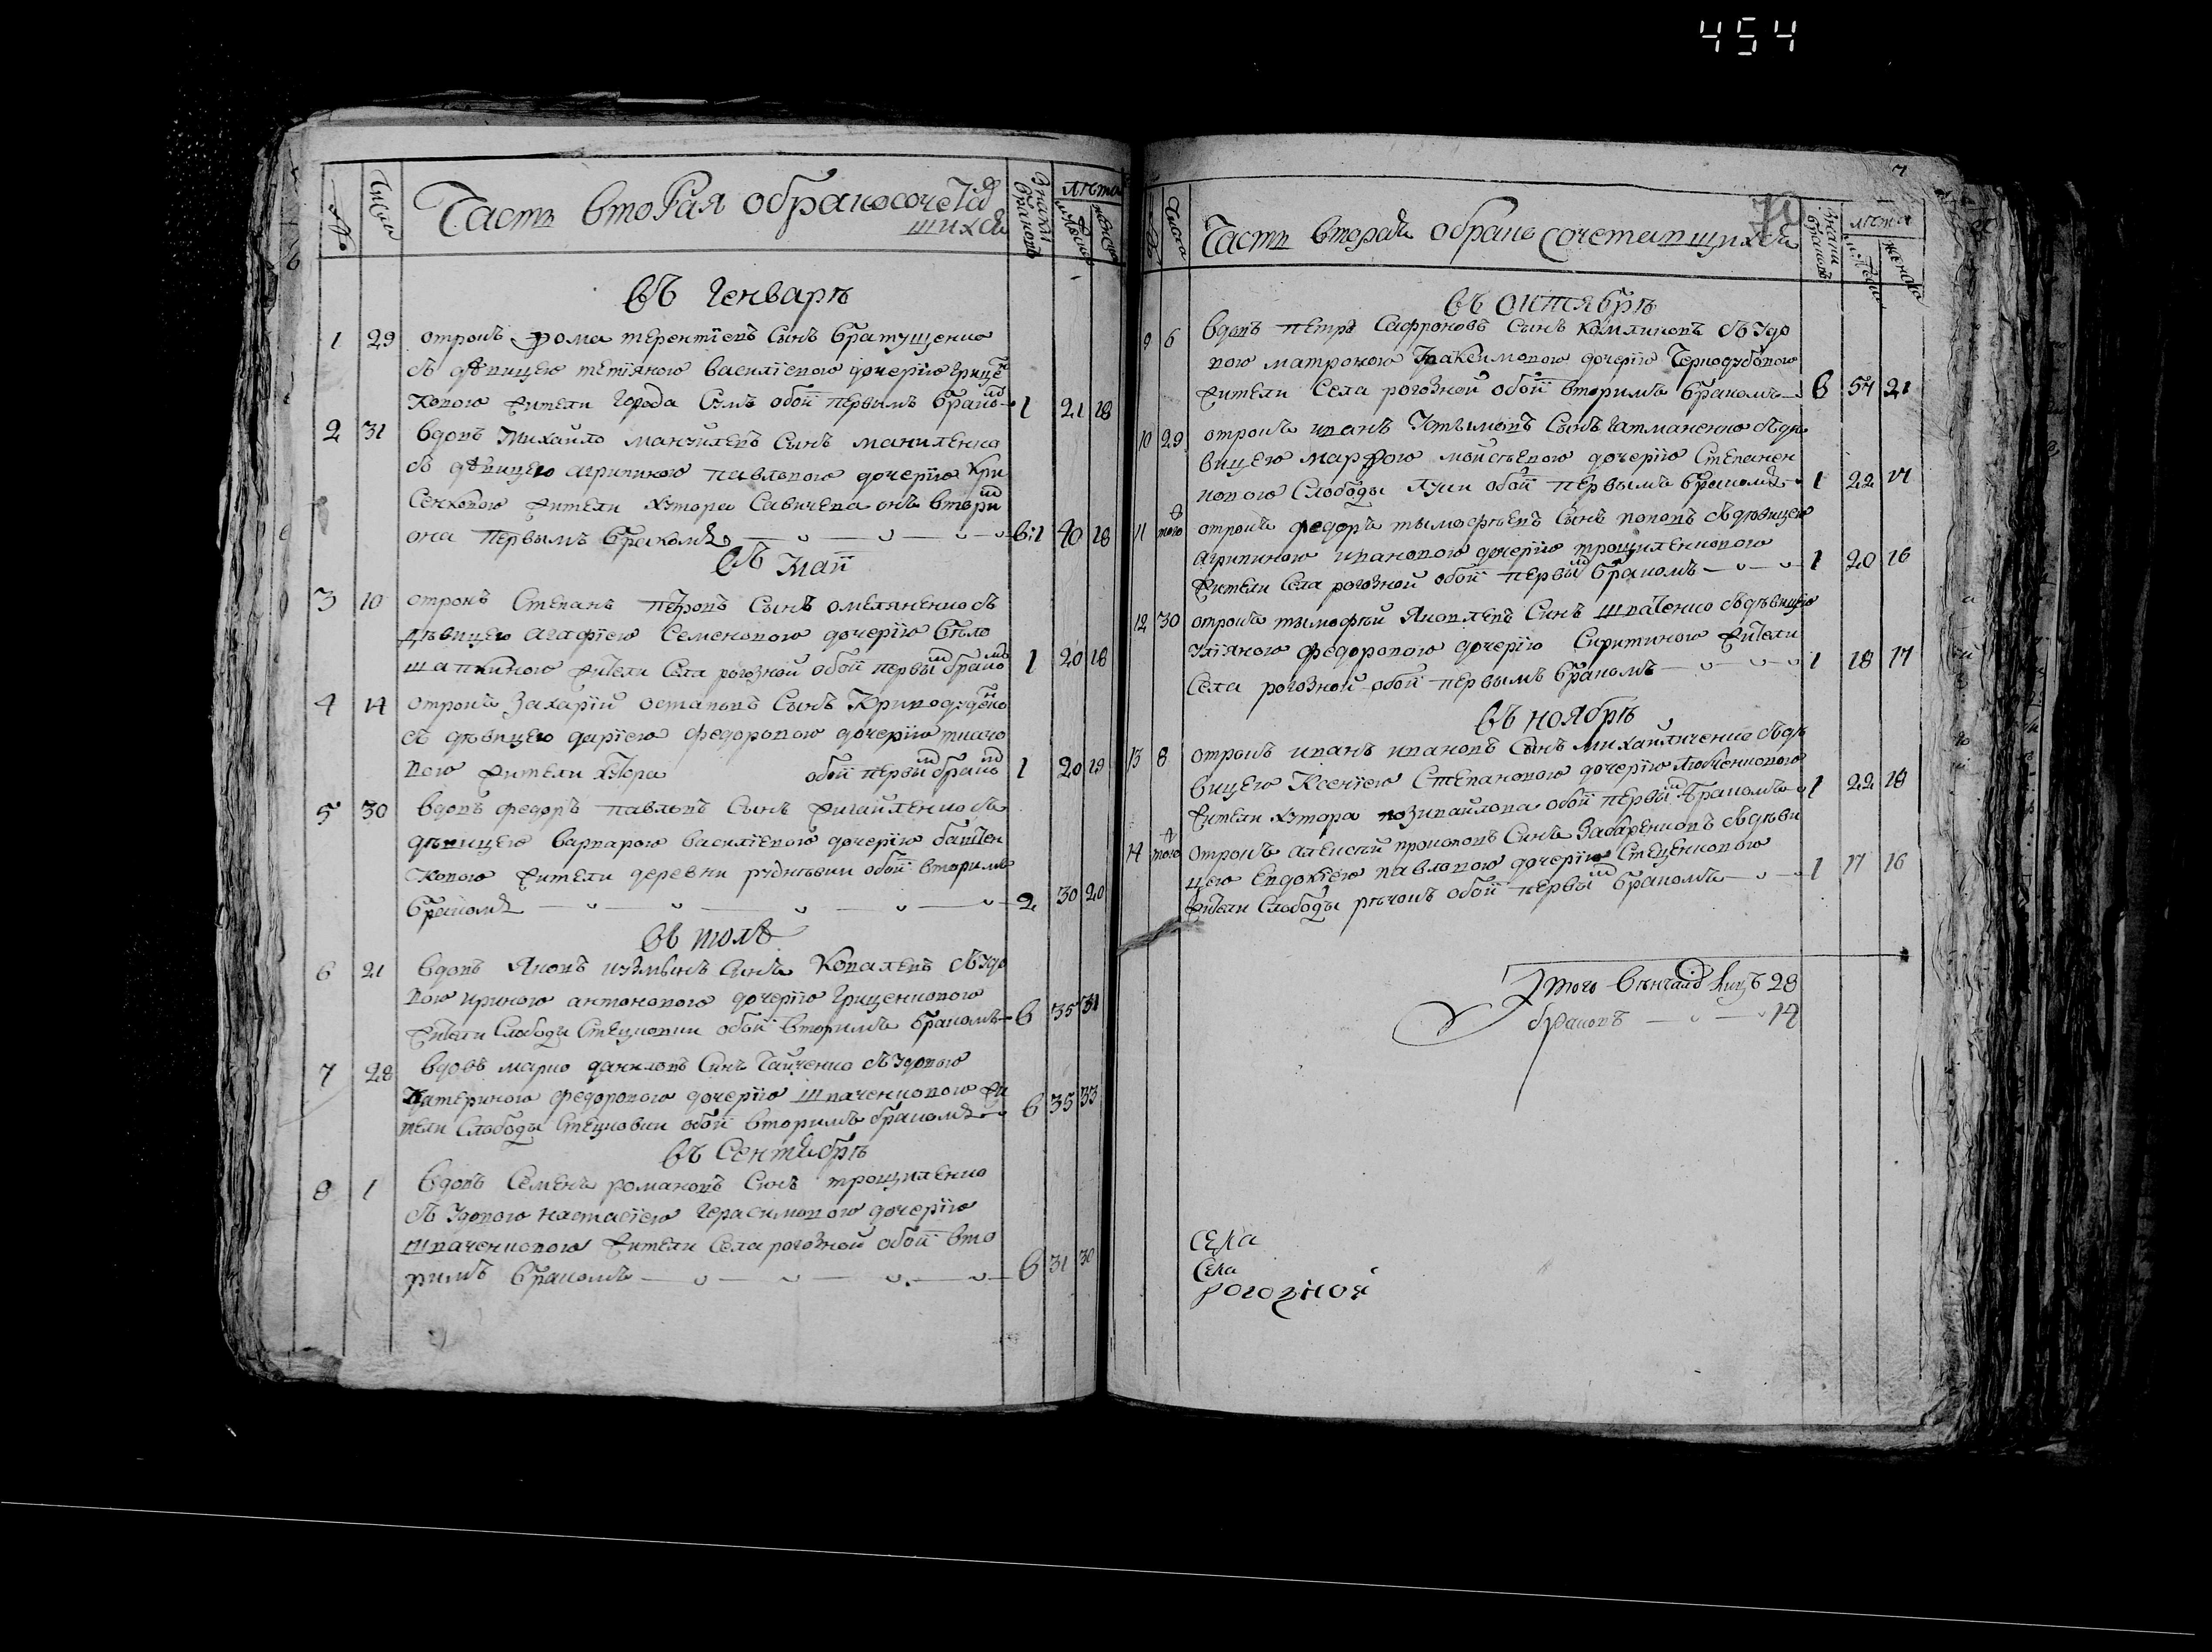 454
№ Числа Часть вторая о бракосочетав
шихся Знаки браковъ лѣта мужеска женска
въ Генварѣ
1 29 отрокъ Фома терентіевъ Сынъ братущенко
съ дѣвицею тетіяною василіевою дочерїю грицен
ковою жители города Сумъ обоїї первымъ бракомъ 1 21 18
2 31 вдовъ Михайло мануйлевъ Сынъ маниленко
съ дѣвицею агрипиною павловою дочерїю кри
Сенковою жители хутора Савичева онъ вторим
она первымъ бракомъ в:1 40 18
въ Маїї
3 10 отрокъ Степанъ петровъ Сынъ омеляненко съ
дѣвицею агафїею Семеновою дочерїю бѣло
шапкиною жители Села рогозной обоїї первым бракомъ 1 20 18
4 14 отрокъ Захарїй остаповъ Сынъ Криводуденко
съ дѣвицею дарїею федоровою дочерїю ткачо
вою жители хутора обоїї первим браком 1 20 19
5 30 вдовъ федоръ павловъ Сынъ жигайленко съ
дѣвицею варварою василїевою дочерїю баштен
ковою жители деревни руднѣвки обоїї вторимъ
бракомъ 2 30 20
въ июлѣ
6 21 вдовъ Яковъ Сынъ Ковалевъ съ удо
вою ириною антоновою дочерїю гриценковою
жители Слободы Стецковки обоїї вторимъ бракомъ в 35 31
7 28 вдовъ марко даниловъ Синъ Гайченко съ удовою
Катериною федоровою дочерїю шваченковою жи
тели Слободы Стецковки обоїї вторимъ бракомъ в 35 33
въ Сентябрѣ
8 1 вдовъ Семенъ романовъ Синъ трощиленко
съ удовою настасїею Герасимовою дочерїю
шваченковою жители Села рогозной обоїї вто
римъ бракомъ в 31 30
7
№ Числа Часть вторая о бракосочетавщихся Знаки браковъ лѣта мужеска женска
въ октябрѣ
9 6 вдовъ петръ Сафроновъ Сынъ Комликовъ съ удо
вою матроною Іоакемовою дочерїю Чернодубовою
жители Села рогозной обоїї вторимъ бракомъ в 57 21
10 29 отрокъ иванъ Сынъ гатманенко съ дѣ
вицею марфою мойсѣевою дочерїю Степанен
ковою Слободы луки обоїї первымъ бракомъ 1 22 17
11 того отрокъ федоръ тымофѣевъ Сынъ поповъ съ дѣвицею
Агрипиною ивановою дочерїю трощиленковою
жители Села рогозной обоїї первым бракомъ 1 20 16
12 30 отрокъ тымофѣй Яковлевъ Синъ шваченко съ дѣвицею
Улїяною федоровою дочерїю Скриткиною жители
Села рогозной обоїї первымъ бракомъ 1 18 17
въ ноябрѣ
13 8 отрокъ иванъ ивановъ Сынъ михайличенко съ дѣ
вицею Ксенїею Степановою дочерїю Любченковою
жители хутора обоїї первым бракомъ 1 22 18
14 того отрокъ алексѣй прокоповъ Синъ Захаренковъ съ дѣви
цею Евдокїею павловою дочерїю Стеценковою
жители Слободы рѣчокъ обоїї первым бракомъ 1 17 16
Итого вѣнчалос лицъ 28
браковъ 14
Села
Села
рогозной